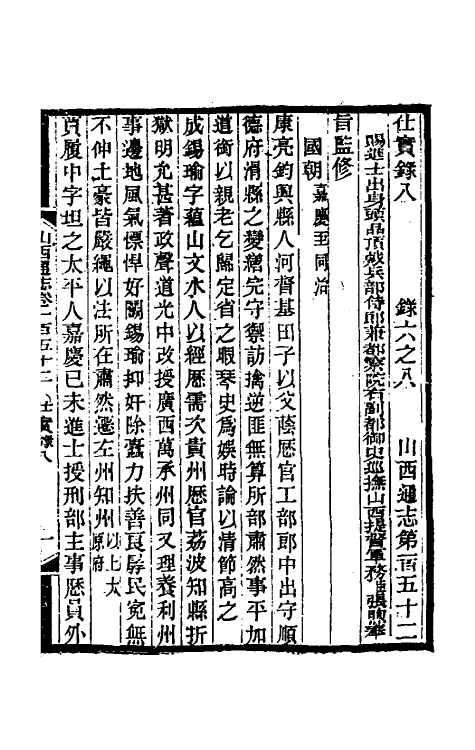 仕實錄八　錄六之八　山西通志第一百五十二
賜進士出身頭品頂戴兵部侍郎兼都察院右副都御史巡撫山西提督軍務
旨監修
國朝嘉慶至同治
康亮鈞興縣人河督基田子以父蔭歷官工部郎中出守順
德府滑縣之變繕完守禦訪擒逆匪無算所部肅然事平加
道銜以親老乞歸定省之暇琴史爲娛時論以清節高之
成錫瑜字蘊山文水人以經歷需次貴州歷官荔波知縣折
獄明允甚著政聲道光中改授廣西萬承州同又理養利州
事邊地風氣慓悍好鬬錫瑜抑奸除蠹力扶善良孱民寃無
不伸土豪皆嚴繩以法所在肅然遷左州知州以上太原府
賈履中字坦之太平人嘉慶己未進士授刑部主事歷員外
山西通志卷一百五十二　仕實錄八　一